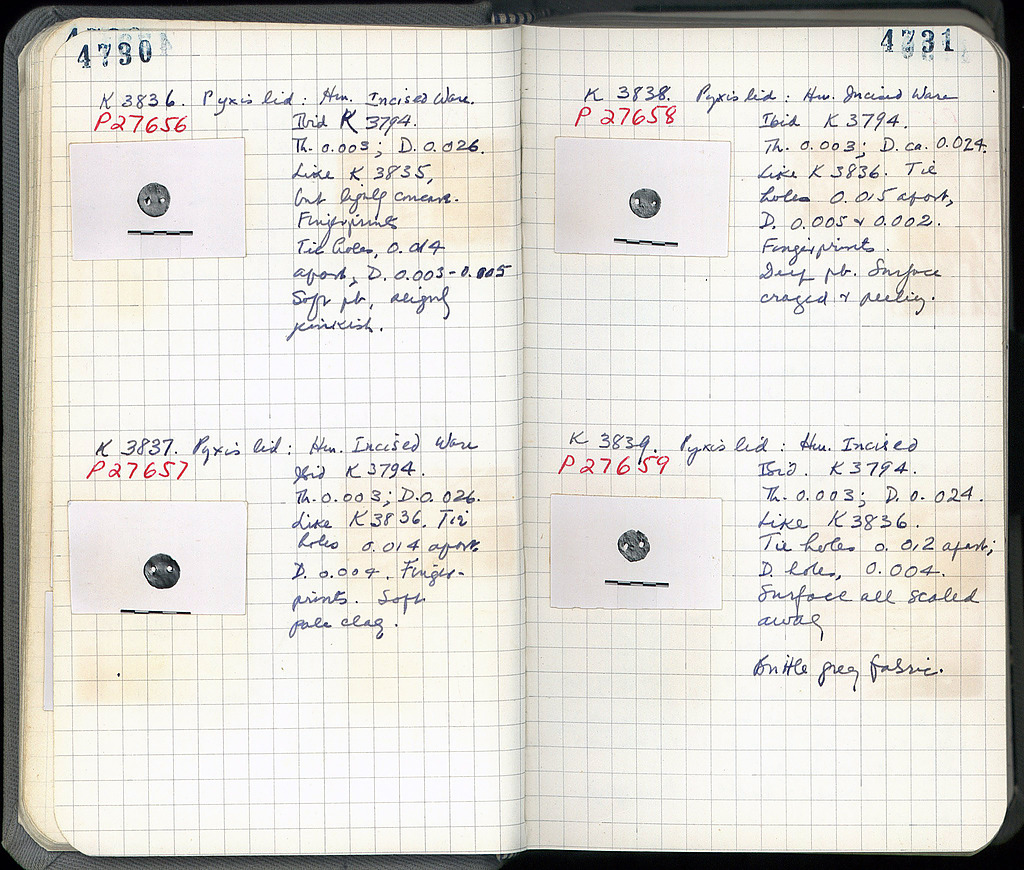 4730
K 3836. Pyxis lid: Hm. Incised Ware.
P27656
Ibid K 3794.
Th. 0.003; D. 0.026.
Like K 3835,
but lightly concave.
Fingerprints
Tie holes, 0.014
apart, D. 0.003-0.005
Soft pb,
pinkish.
K 3837. Pyxis lid: Hm. Incised Ware
P27657
Ibid K3794.
Th. 0.003; D. 0.026.
Like K3836. Tie
holes 0.014 apart.
D. 0.004. Finger-
prints. Soft
pale clay.
4731
K 3838. Pyxis lid: Hm. Incised Ware
P 27658
Ibid K 3794.
Th. 0.003; D. ca. 0.024.
Like K 3836. Tie
holes 0.015 apart,
D. 0.005 & 0.002.
Fingerprints.
Deep pb. Surface
crazed & peeling.
K 3839. Pyxis lid: Hm. Incised
P27659
Ibid. K 3794.
Th. 0.003; D. 0.024.
Like K 3836.
Tie holes 0.012 apart;
D. holes, 0.004.
Surface all scaled
away
Brittle grey fabric.